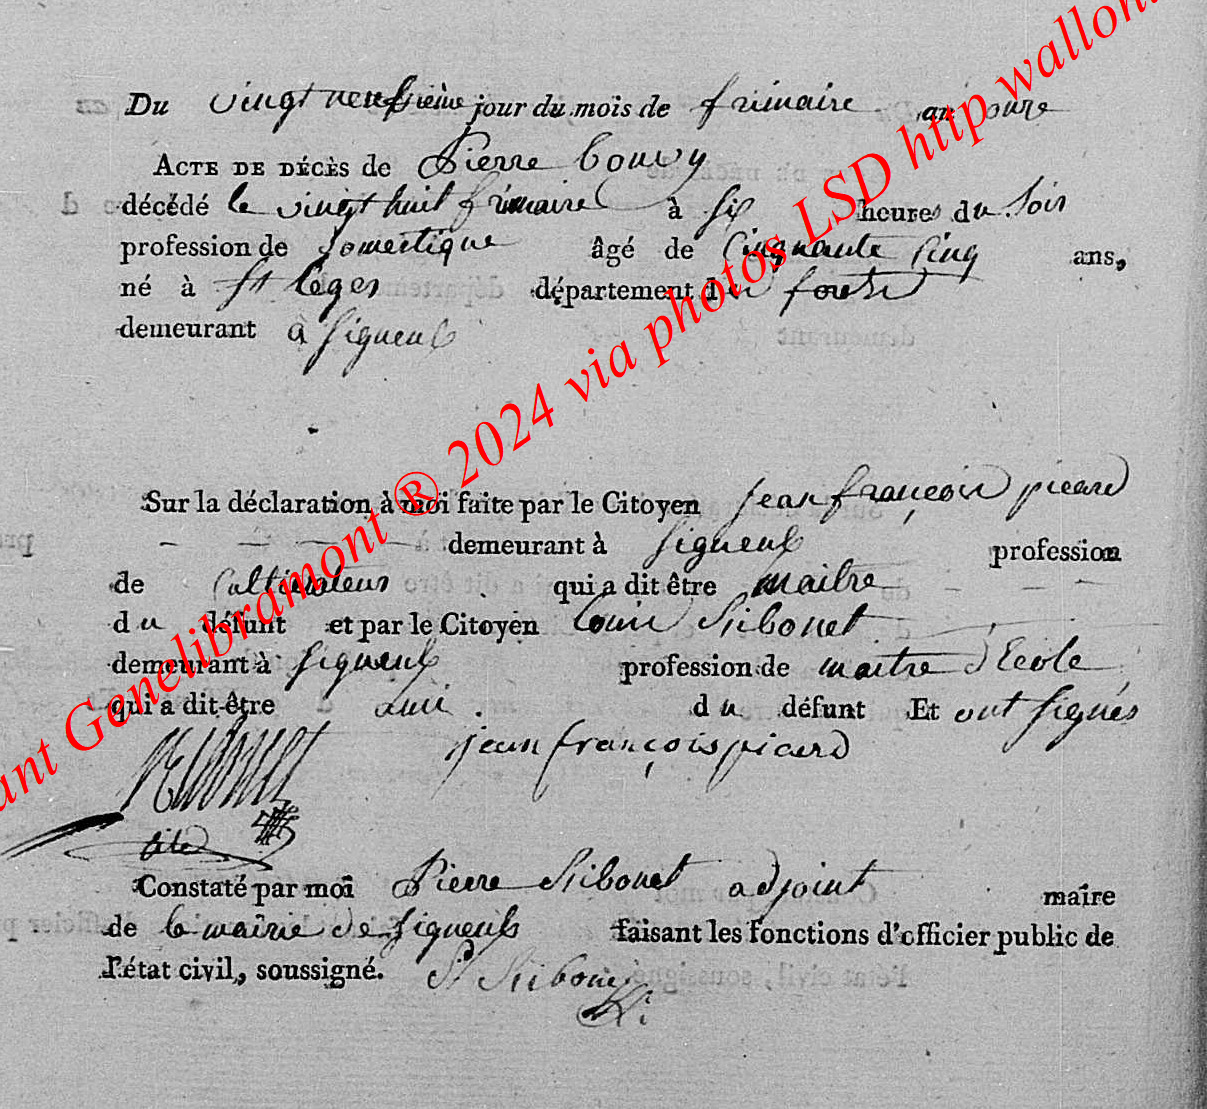 Du vingt neufvieme jour du mois de frimaire an onze
ACTE DE DÉCÈS de Pierre Couvy
décédé le vingt huit frimaire à six heures du Soir
profession de Domestique âgé de Cinquante Cinq ans,
né à St Leger département du forets
demeurant à Signeulx
Sur la déclaration à moi faite par le Citoyen jean françois picard
demeurant à Signeulx profession
de Cultivateur qui a dit être maitre
du défunt et par le Citoyen Louis Ribonet
demeurant à Signeulx profession de maitre d'Ecole
qui a dit être ami du défunt Et ont signés
jean françois picard
Constaté par moi Pierre Ribonet adjoint maire
de la mairie de Signeulx faisant les fonctions d'officier public de
l'état civil, soussigné.
ant Genelibramont ® 2024 via photos LSD http wallon